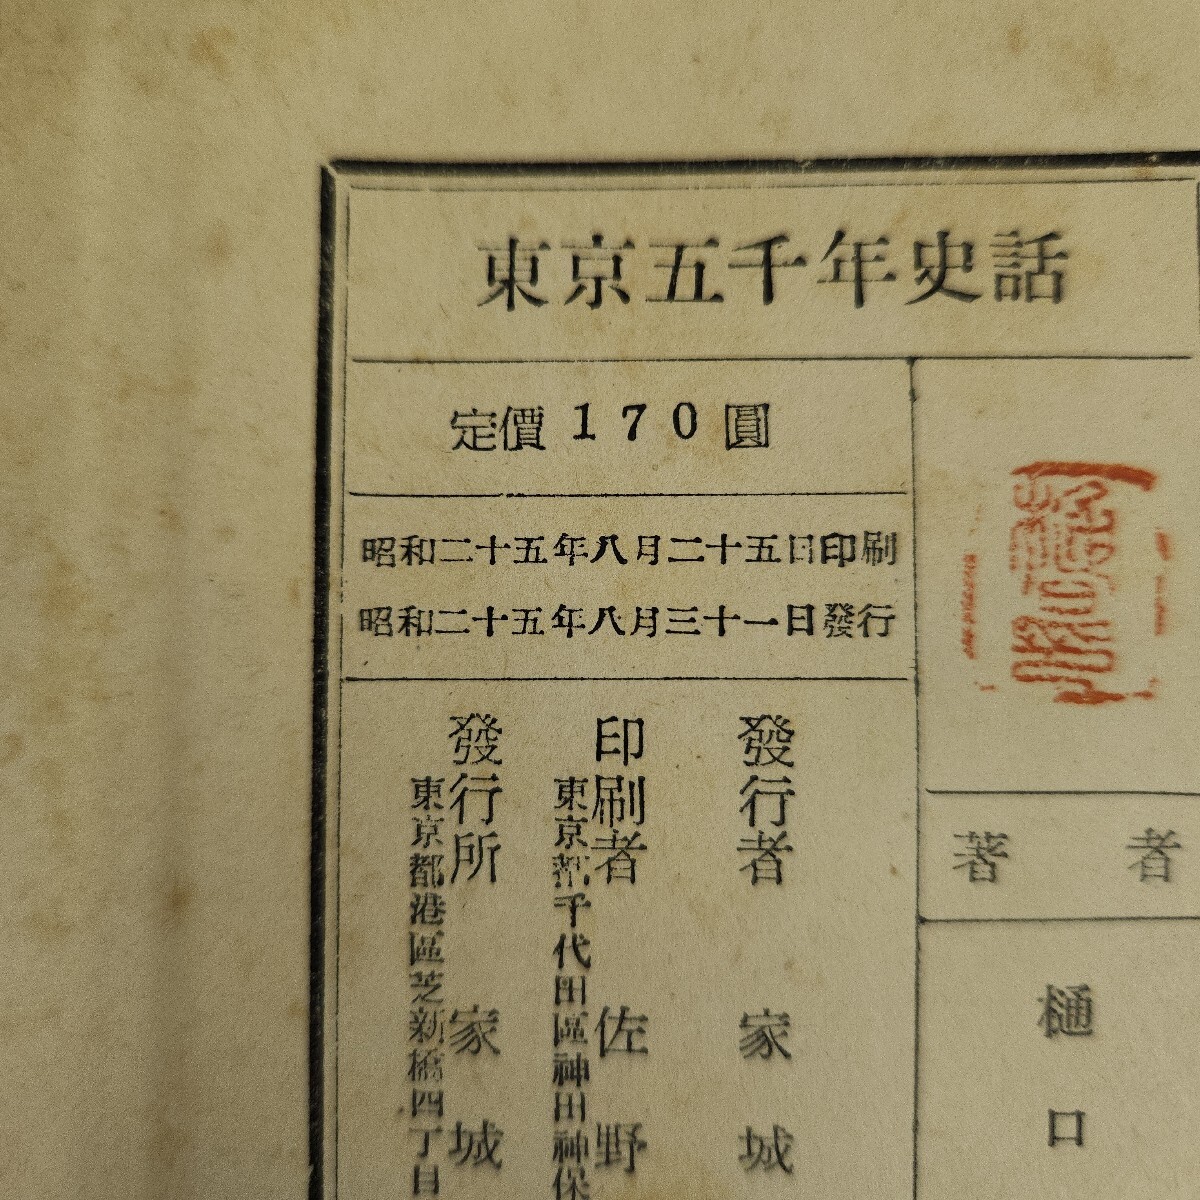 東京五千年史話
定價 170 圓
昭和二十五年八月二十五日印刷
昭和二十五年八月三十一日發行
著者
樋口
發行者 家城
印刷者 佐野
東京都千代田區神田神保
發行所 家城
東京都港區芝新橋四丁目